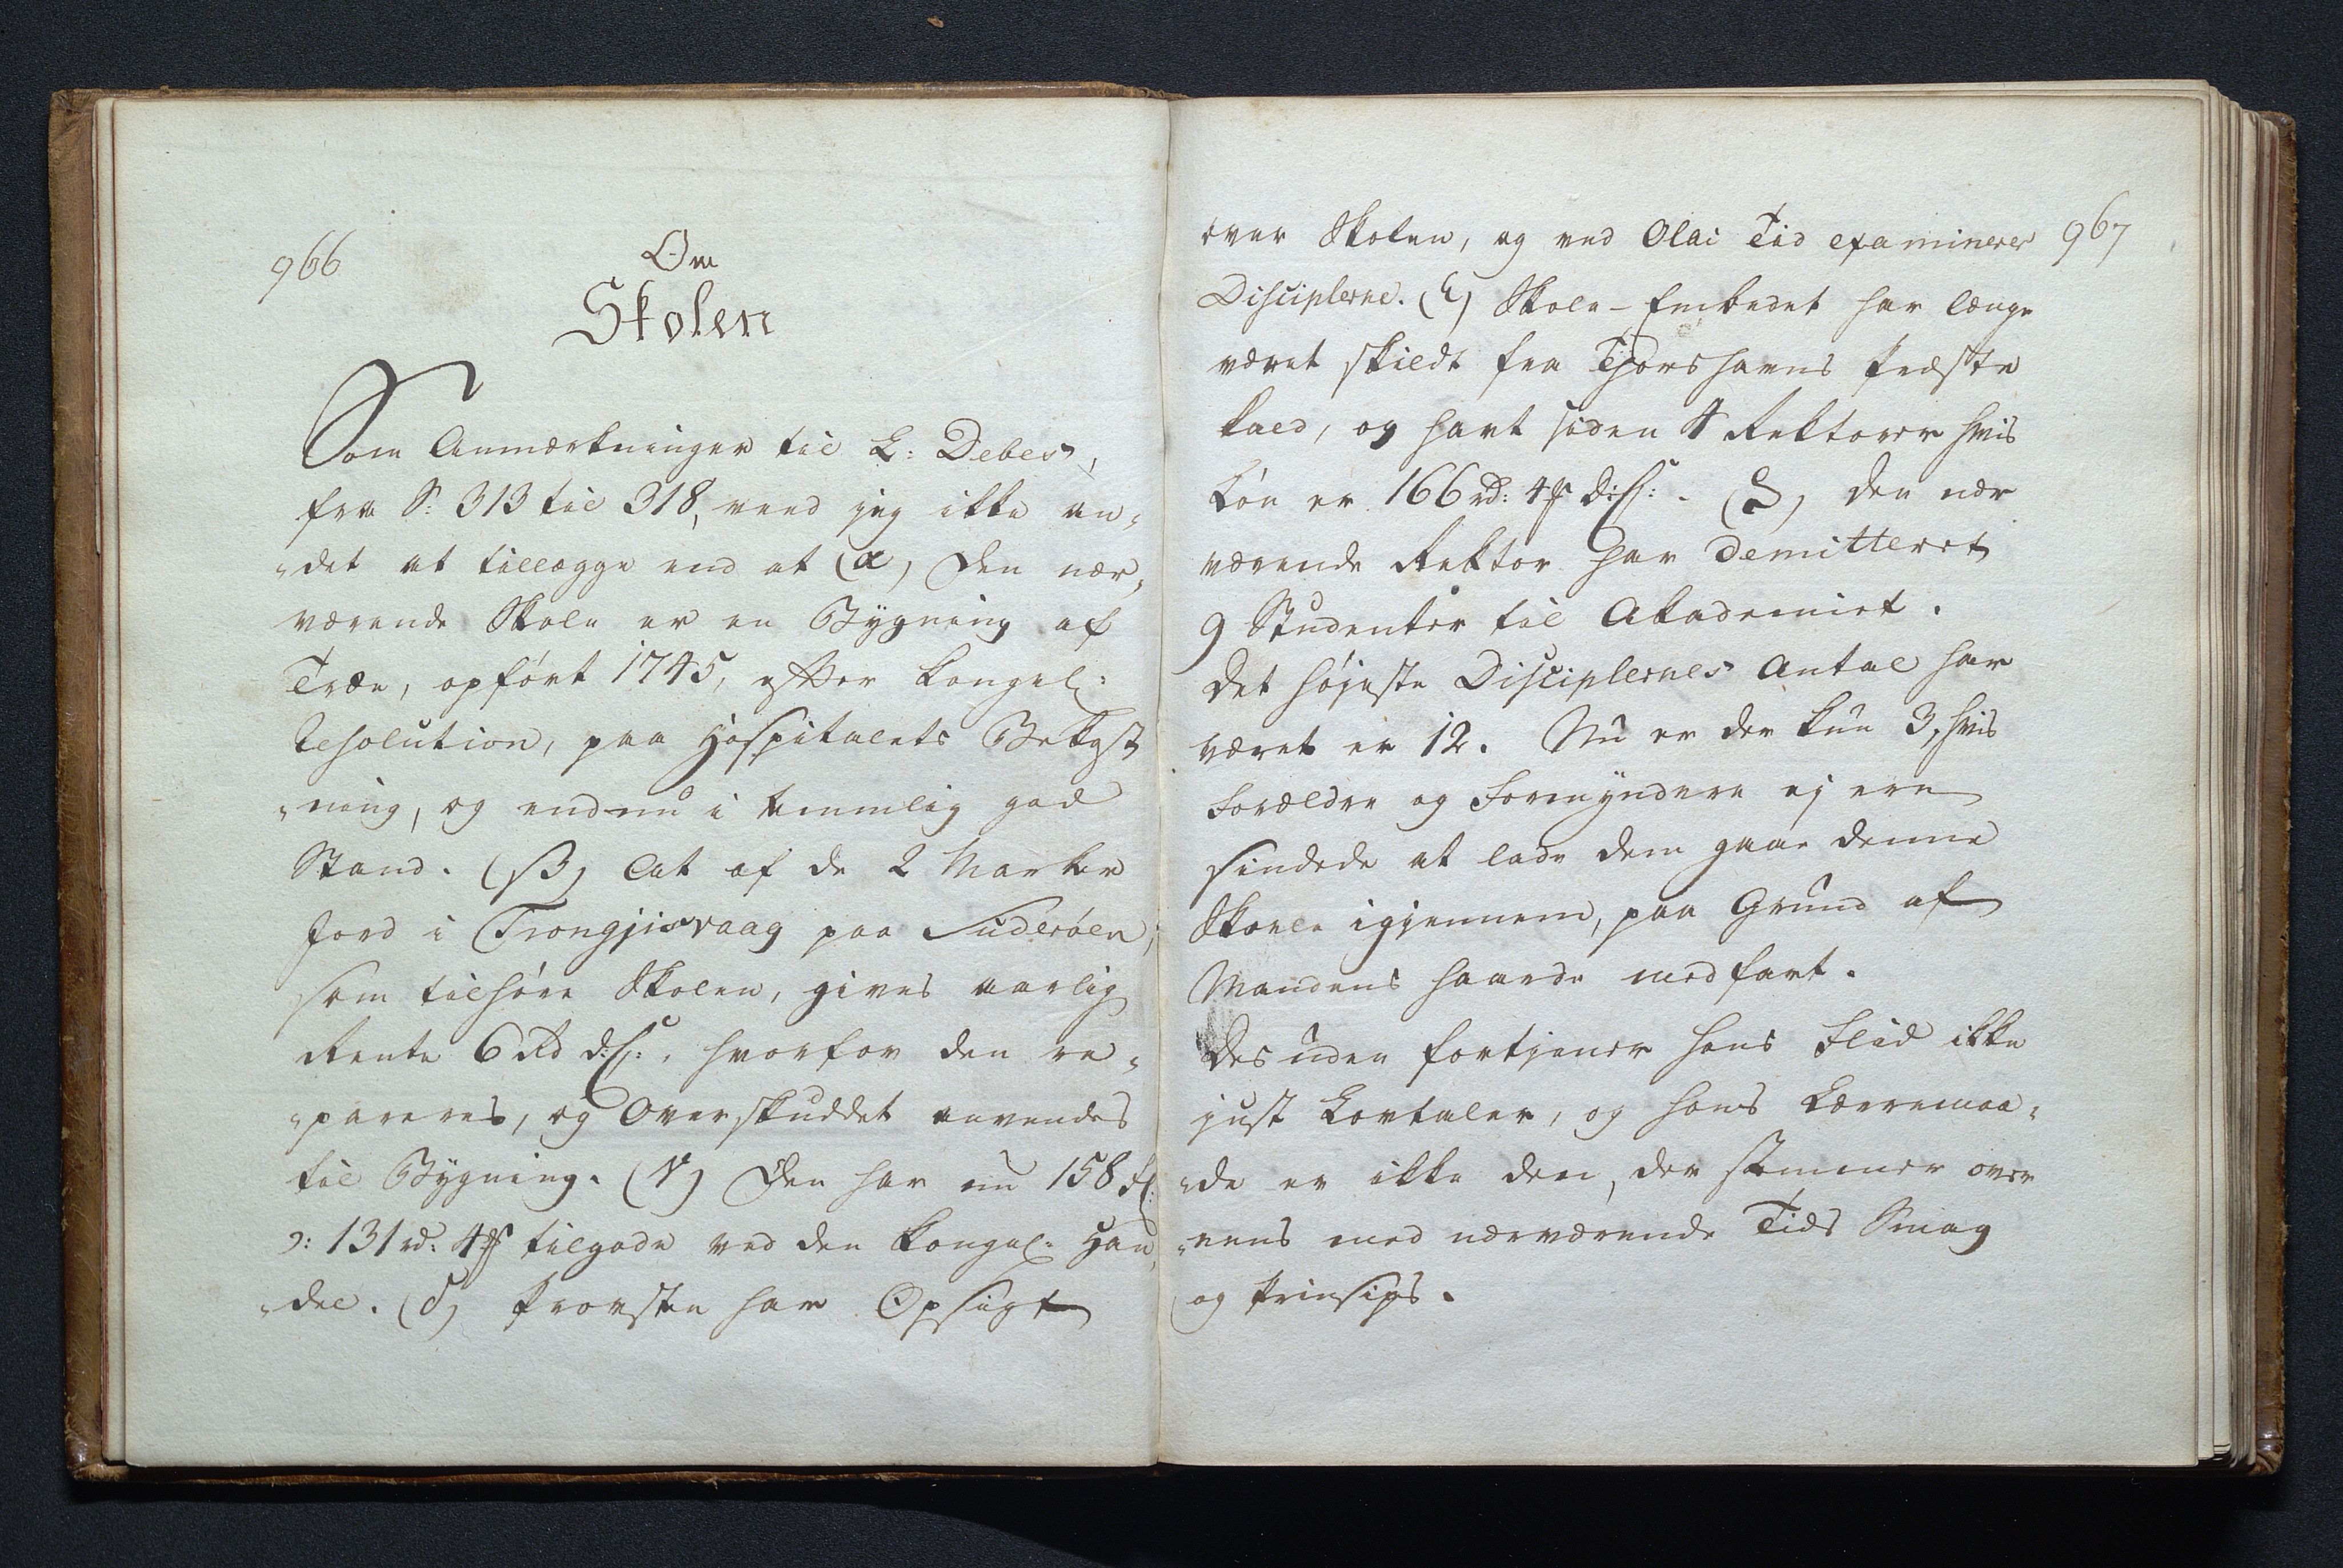 966
Om
Skolen
Som Anmærkninger til L: Debes,
fra S: 313 til 318, veed jeg ikke an„
„det at tillægge end at (α) Den nær„
værende Skole er en Bygning af
Træe, opført 1745, efter Kongel:
Resolution, paa Hospitalets Bekost
„ning, og endnu i temmelig god
Stand. (β) At af de 2 Marker
Jord i Trongjisvaag paa Suderöen,
som tilhøre Skolen, gives aarlig
Rente 6 Rd d:C:, hvorfor den re„
„pareres, og Overskuddet anvendes
til Bygning. (γ) Den har nu 158
ɔ: 131 rd: 4 tilgode ved den Kongel: Han„
„del. (δ) Provsten har Opsigt
967
over Skolen, og ved Olai Tid examinerer
Disciplerne. (ε) Skole-Embedet har længe
været skildt fra Thorshavns Præste
kald, og havt siden 4 Rektorer hvis
Løn er 166 rd: 4 d:C:. (ζ) Den nær
værende Rektor har demitteret
9 Studenter til Akademiet.
Det højeste Disciplernes Antal har
været er 12. Nu er der kun 3, hvis
Forældre og Formyndere ej ere
sindede at lade dem gaae denne
Skoele igjennem, paa Grund af
Mandens haarde medfart.
Des uden fortjener hans Flid ikke
just Lovtaler, og hans Læremaa„
„de er ikke den, der stemmer over
„eens med nærværende Tids Smag
og Prinsips.